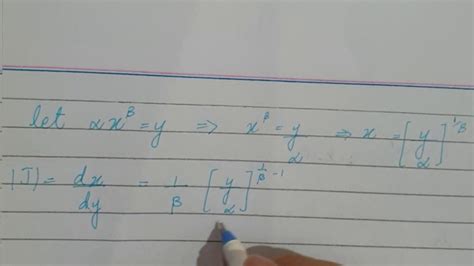 let αx^β = y ⇒ x^β = y/α ⇒ x = [y/α]^{1/β}
|J| = dx/dy = 1/β [y/α]^{1/β - 1}